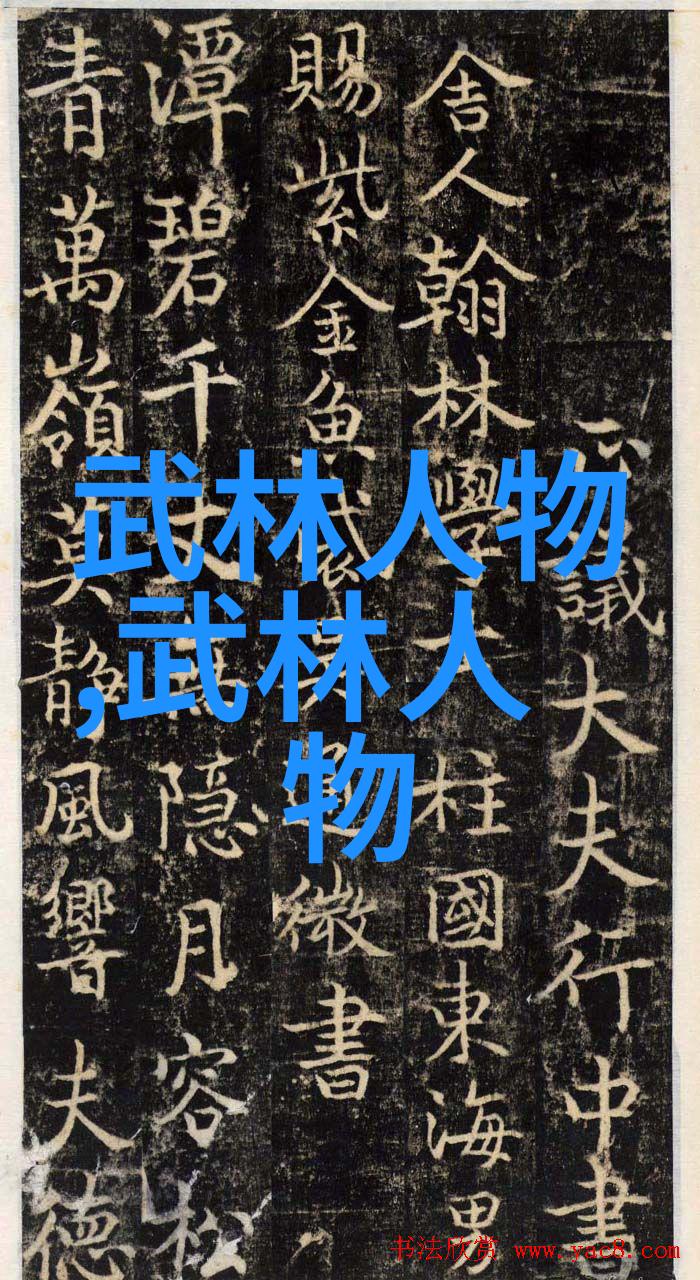 正議大夫行中書
舍人翰林學士柱國東海男
賜紫金魚袋吳通微書
潭碧千丈無隱月容松
青萬嶺莫靜風響夫德
武林人物
,武林人
物
书法欣赏 www.yac8.com